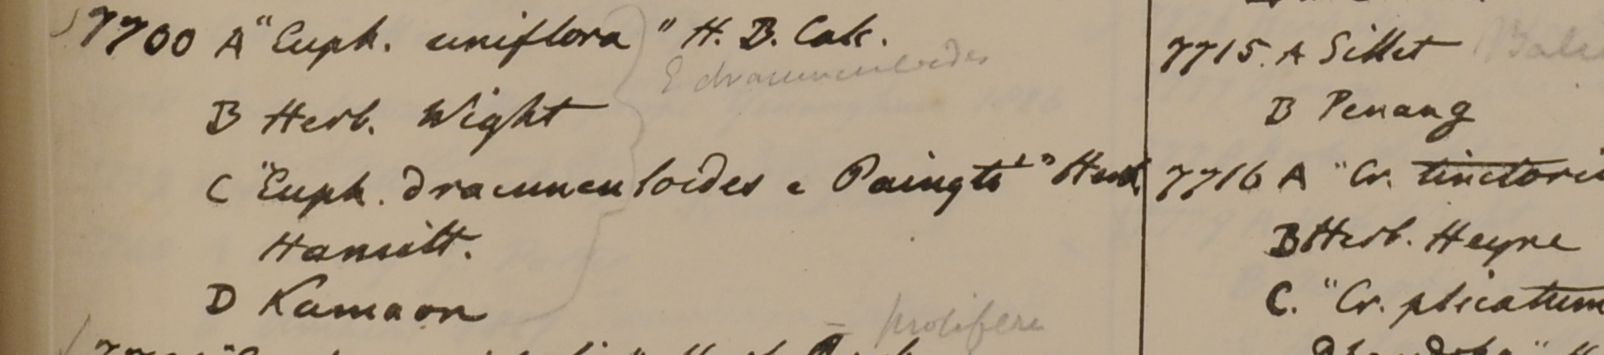 7700 A "Euph. uniflora" H. B. Calc.
E dracunculoides
B Herb. Wight
C "Euph. dracunculoides e Paingti" Herb
Hamilt.
D Kamaon
= prolifera
7715. A Sillet
B Penang
7716 A "Cr. tinctori
B Herb. Heyne
C. "Cr. plicatum